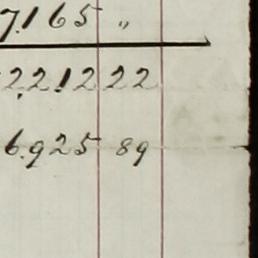 7.165 „
22.12 22
6.925 89